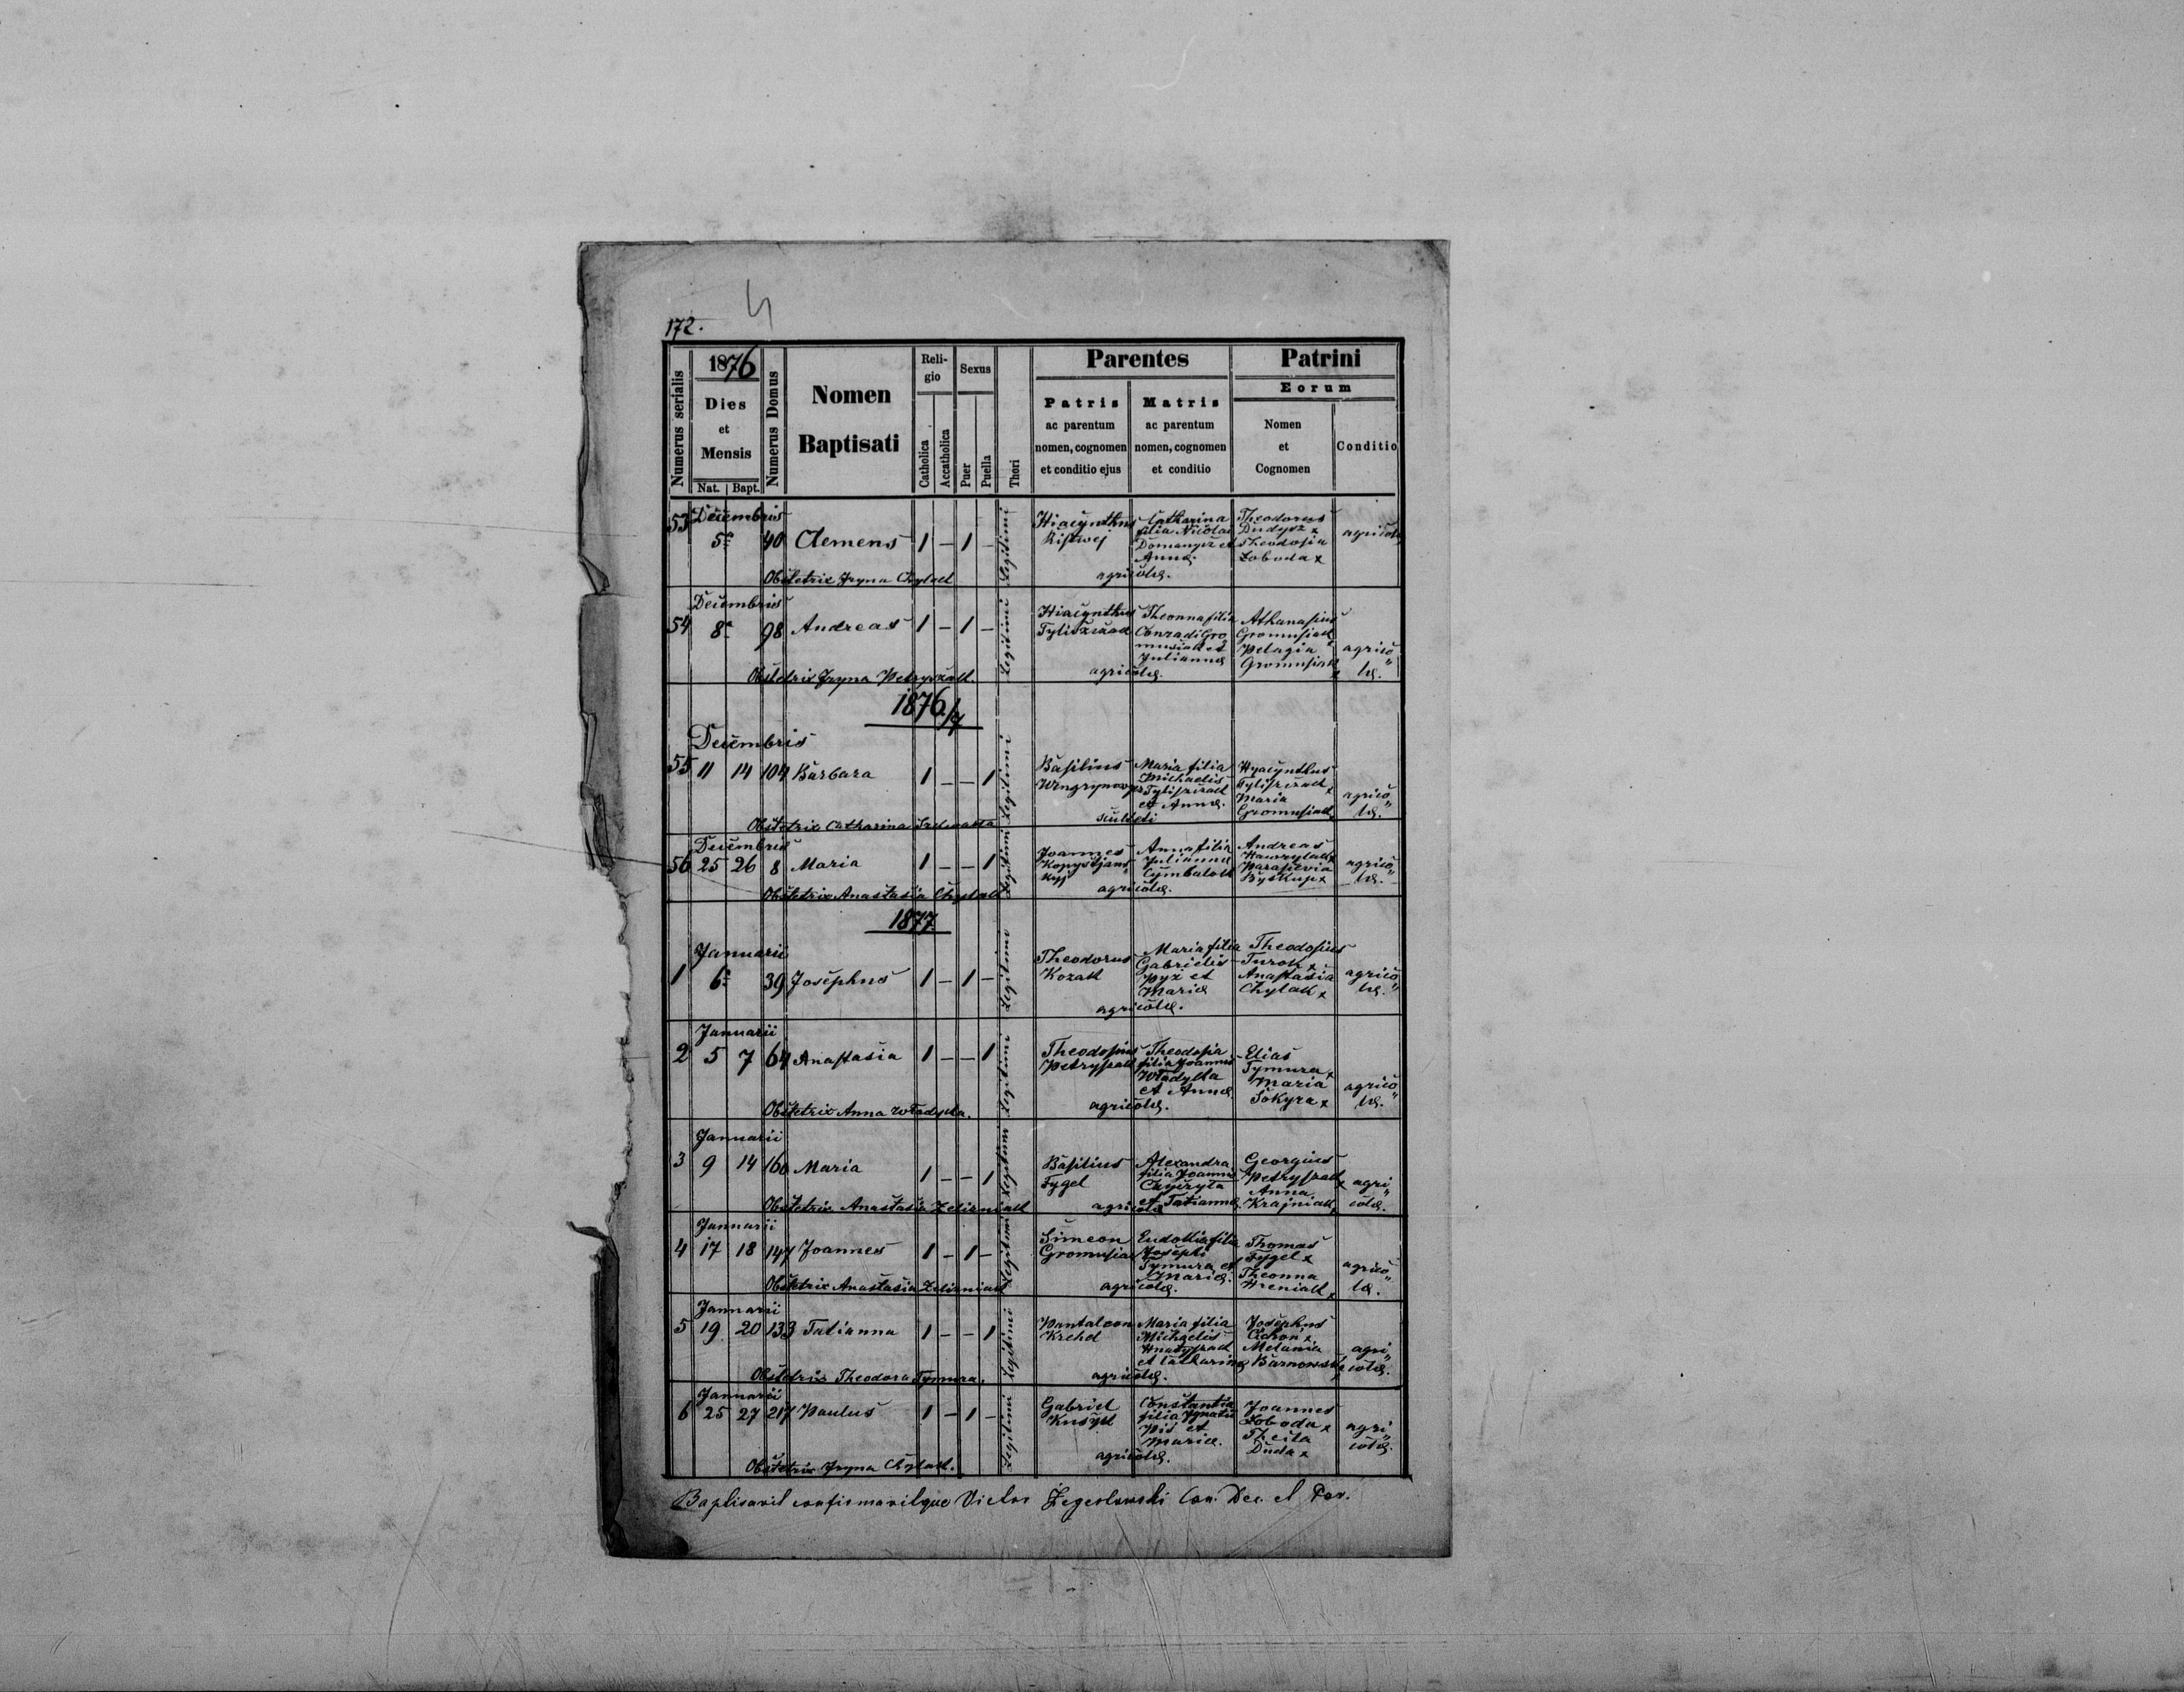 172.
1876
Numerus serialis
Dies
et
Mensis
Nat. Bapt.
Numerus Domus
Nomen
Baptisati
Religio
Catholica
Accatholica
Sexus
Puer
Puella
Thori
Parentes
Patris
ac parentum
nomen, cognomen
et conditio ejus
Matris
ac parentum
nomen, cognomen
et conditio
Patrini
Eorum
Nomen
et
Cognomen
Conditio
53 Decembris
5 40 Clemens 1 – 1 – Legitimi
Hiacynthus
Catharina
filia Nicolai
Domanycz et
Anna
agricolae.
Theodorus
Dudycz x
Theodosia
Łoboda x
agricolae
Obstetrix Iryna Chylak
54 Decembris
8 98 Andreas 1 – 1 – Legitimi
Hiacynthus
Tyliszczak
Theonna filia
Conradi Gro
musiak et
Julianna
agricolae.
Athanasius
Gromusiak
Pelagia
Gromusiak x
agrico
lae.
Obstetrix Iryna Petryszak.
1876/7
Decembris
55 11 14 104 Barbara 1 – – 1 Legitimi
Basilius
Wengrynowycz
Maria filia
Michaelis
Tyliszczak
et Annae.
sculteti
Hyacynthus
Tyliszczak x
Maria
Gromusiak x
agrico
lae.
Obstetrix Catharina
Decembris
56 25 26 8 Maria 1 – – 1 Legitimi
Joannes
Kopystjans
kyj
Anna filia
Julianna
Cymbalak
agricolae.
Andreas
Hawrylak x
Parascevia
Byskup x
agrico
lae.
Obstetrix Anastasia Chylak
1877
Januarii
1 6 39 Josephus 1 – 1 – Legitimi
Theodorus
Kozak
Maria filia
Gabrielis
Pyz et
Maria
agricolae.
Theodosius
Turok x
Anastasia
Chylak x
agrico
lae.
Januarii
2 5 7 64 Anastasia 1 – – 1 Legitimi
Theodosius
Petryszak
Theodosia
filia Joannis
Władyka
et Annae
agricolae.
Elias
Tymura x
Maria
Sokyra x
agrico
lae.
Obstetrix Anna Władyka.
Januarii
3 9 14 160 Maria 1 – – 1 Legitimi
Basilius
Fygel
Alexandra
filia Joannis
et Tatianna
agricolae
Georgius
Petryszak x
Anna
Krajniak x
agri
colae.
Obstetrix Anastasia Zelizniak
Januarii
4 17 18 147 Joannes 1 – 1 – Legitimi
Simeon
Gromusiak
Eudokia filia
Josephi
Tymura et
Maria.
agricolae.
Thomas
Fygel x
Theonna
Hreniak x
agrico
lae.
Obstetrix Anastasia Zelizniak
Januarii
5 19 20 133 Tatianna 1 – – 1 Legitimi
Pantaleon
Krehel
Maria filia
Michaelis
Hnatyszak
et Catharina
agricolae.
Josephus
Cichon x
Melania
Barnowska x
agri
colae.
Obstetrix Theodora Tymura.
Januarii
6 25 27 217 Paulus 1 – 1 – Legitimi
Gabriel
Kusyk
Constantia
filia Ignatii
Pis et
Maria.
agricolae.
Joannes
Łoboda x
Thecla
Duda x
agri
colae.
Obstetrix Iryna Chylak.
Baptisavit confirmavitque Victor Żegestowski Can. Dec. et Par.